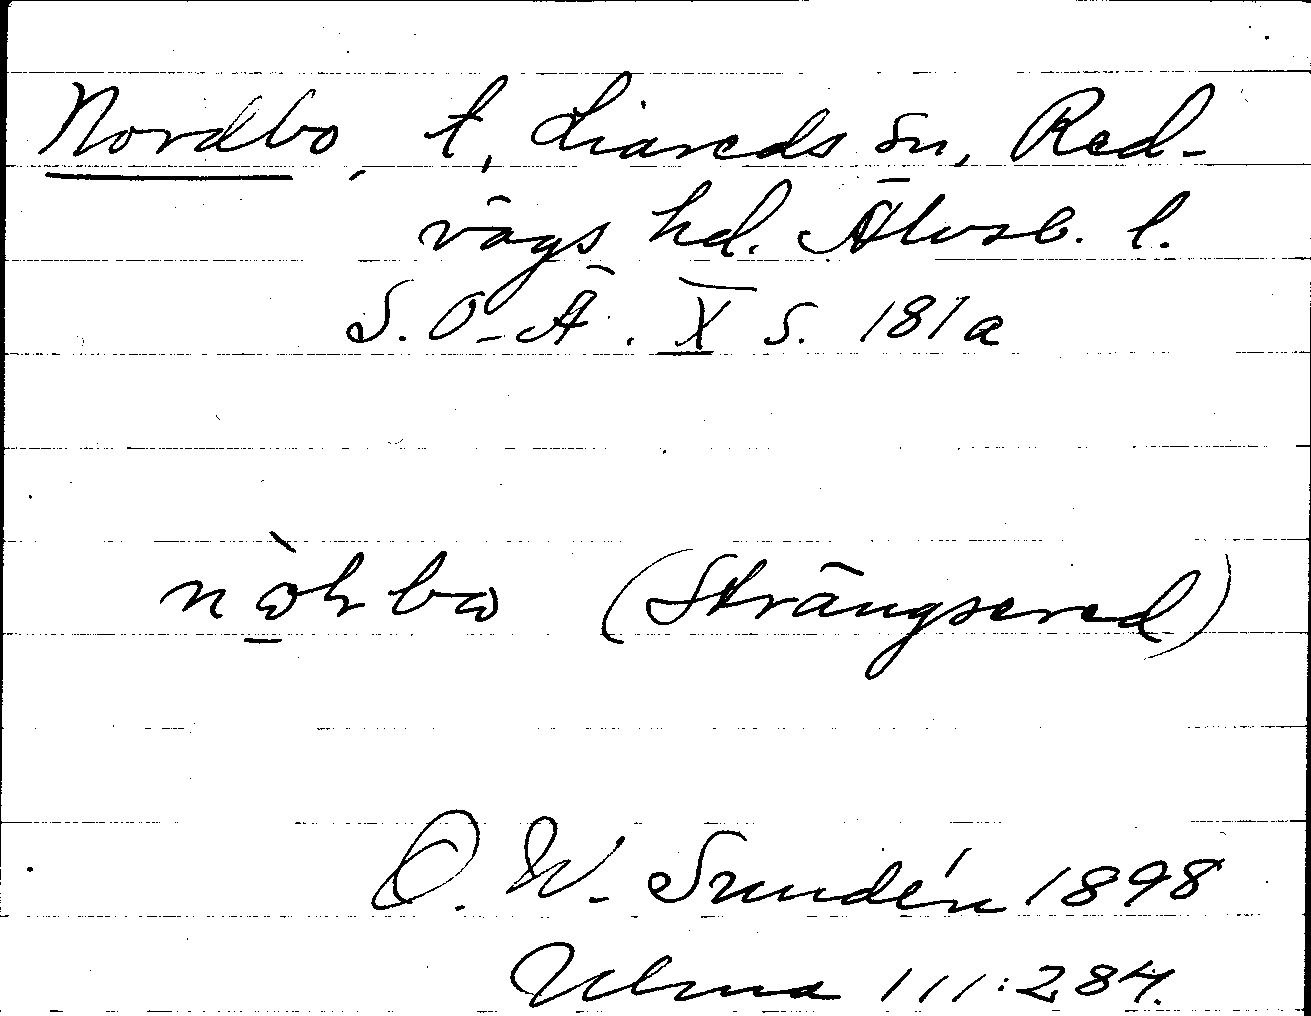 Nordbo, t, Liareds sn, Red-
vägs hd. Älvsb. l.
S. O. Ä. X s. 181a
(Strängsered)
D. W. Sundén 1898
Ulma 111:284.